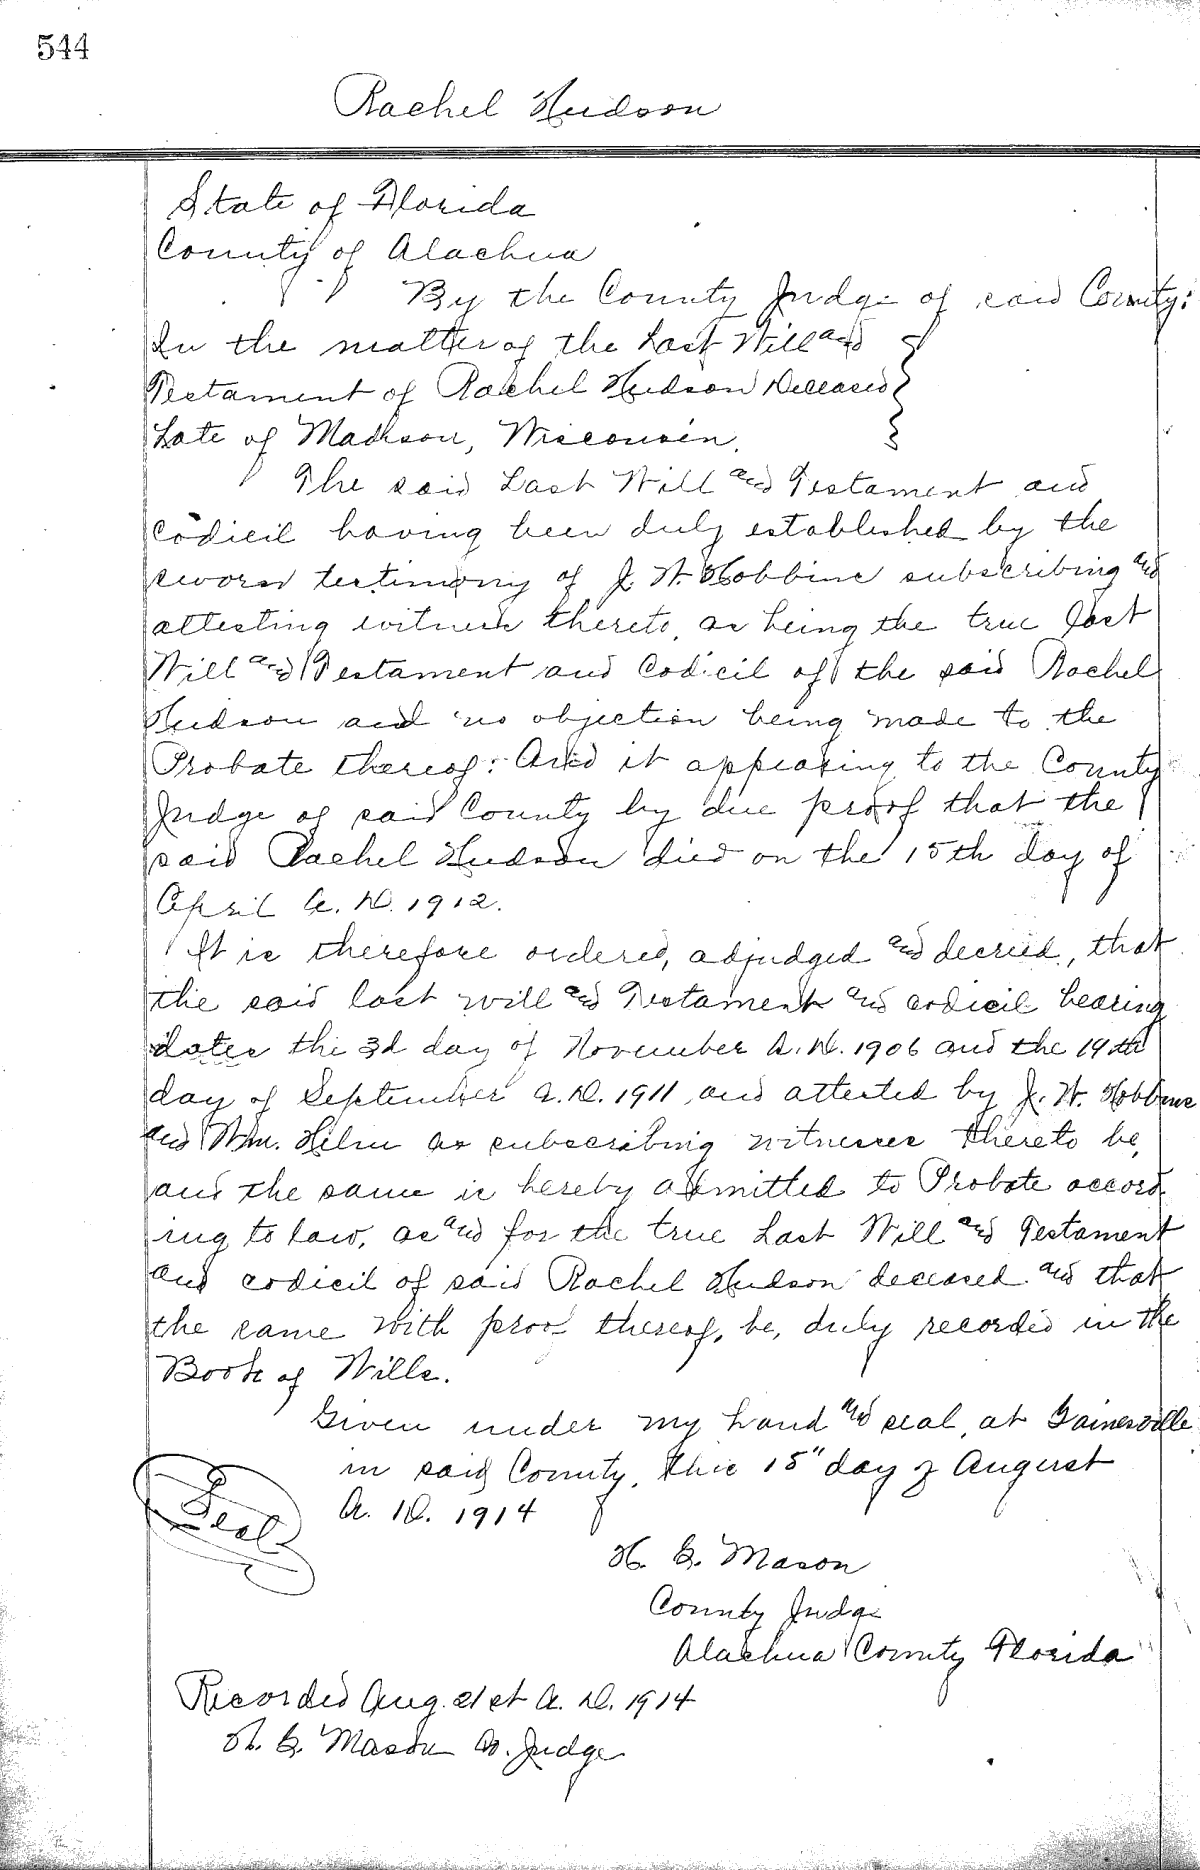 544
Rachel Hudson
State of Florida
County of Alachua
By the County Judge of said County:
In the matter of the Last Will and
Testament of Rachel Hudson Deceased
Late of Madison, Wisconsin.
The said Last Will and Testament and
Codicil having been duly established by the
sworn testimony of J. W. Hobbins subscribing and
attesting witness thereto, as being the true last
Will and Testament and Codicil of the said Rachel
Hudson and no objection being made to the
Probate thereof: And it appearing to the County
Judge of said County by due proof that the
said Rachel Hudson died on the 15th day of
April A. D. 1912.
It is therefore ordered, adjudged and decreed, that
the said last will and Testament and codicil bearing
dates the 3d day of November A. D. 1906 and the 19th
day of September A. D. 1911 and attested by J. W. Hobbins
and Wm. Helm as subscribing witnesses thereto be,
and the same is hereby admitted to Probate accord
ing to law, as and for the true Last Will and Testament
and codicil of said Rachel Hudson deceased and that
the same with proof thereof, be, duly recorded in the
Book of Wills.
Given under my hand and seal, at Gainesville
in said County, this 15" day of August
A. D. 1914
Seal
H. G. Mason
County Judge
Alachua County Florida
Recorded Aug. 21st A. D. 1914
H. G. Mason Co. Judge